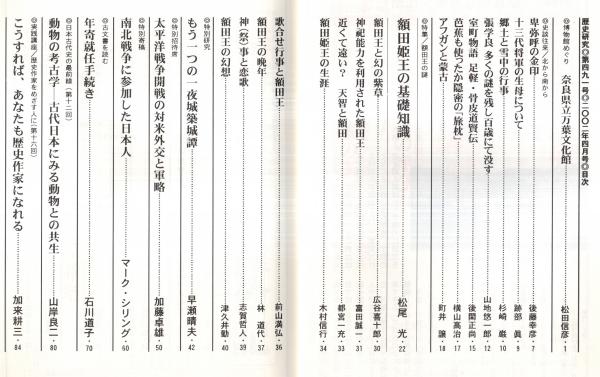 歴史研究◎第四九一号◎二〇〇二年四月号◎目次
◎博物館めぐり 奈良県立万葉文化館 松田信彦・1
◎史談往来／北から南から
卑弥呼の金印 後藤幸彦・7
十三代将軍の生母について 跡部 眞・9
郷土と雪中の行事 杉崎 巌・10
張学良 多くの謎を残し百歳にて没す 山地悠一郎・12
室町物語・足軽・骨皮道賢伝 後関正尚・15
芭蕉も使ったか隠密の「旅枕」 横山高治・17
アフガンと蒙古 町井 譲・18
◎特集／額田王の謎
額田姫王の基礎知識 松尾 光・22
額田王と幻の紫草 広谷喜十郎・30
神祀能力を利用された額田王 富田誠一・31
近くて遠い？ 天智と額田 都宮一充・33
額田姫王の生涯 木村信行・34
歌合せ行事と額田王 前山満弘・36
額田王の晩年 林 道代・37
神（祭）事と恋歌 志賀哲人・39
額田王の幻想 津久井勤・40
◎特別研究
もう一つの一夜城築城譚 早瀬晴夫・42
◎特別招待席
太平洋戦争開戦の対米外交と軍略 加藤卓雄・50
◎特別寄稿
南北戦争に参加した日本人 マーク・シリング・60
◎古文書を読む
年寄就任手続き 石川道子・70
◎日本古代史の最前線（第十二回）
動物の考古学 古代日本にみる動物との共生 山岸良二・80
◎実践講座／歴史作家をめざす人に（第十六回）
こうすれば、あなたも歴史作家になれる 加来耕三・84